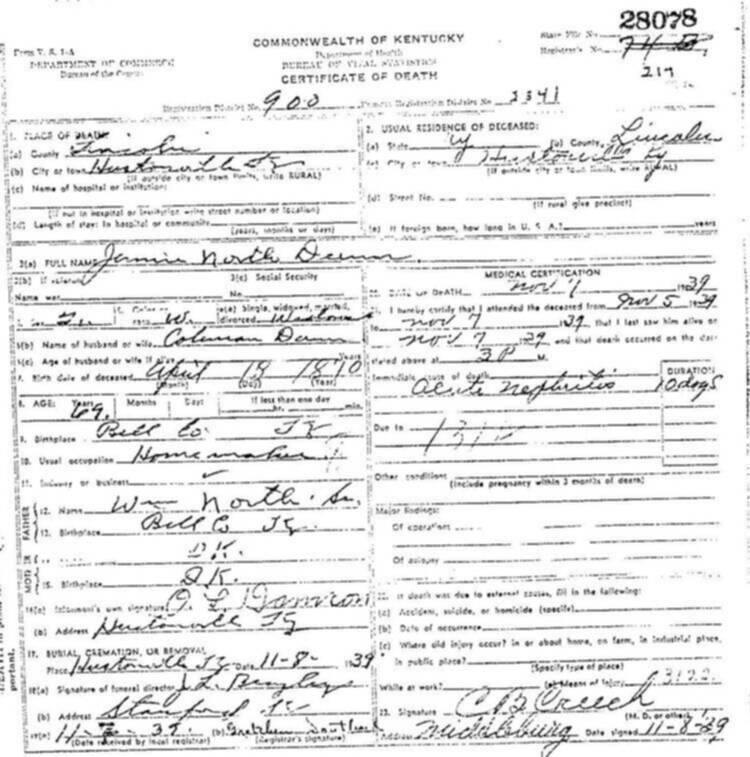 28078
Form V. S. 1-A
COMMONWEALTH OF KENTUCKY
State File No.
DEPARTMENT OF COMMERCE
Department of Health
Registrar's No.
Bureau of the Census
BUREAU OF VITAL STATISTICS
217
CERTIFICATE OF DEATH
Registration District No. 900 Primary Registration District No. 2341
1. PLACE OF DEATH:
(a) County Lincoln
(b) City or town Hustonville Ky
(If outside city or town limits, write RURAL)
(c) Name of hospital or institution:
(If not in hospital or institution write street number or location)
(d) Length of stay: In hospital or community
(years, months or days)
2. USUAL RESIDENCE OF DECEASED:
(a) State Ky (b) County Lincoln
(c) City or town Hustonville Ky
(If outside city or town limits, write RURAL)
(d) Street No.
(If rural give precinct)
(e) If foreign born, how long in U. S. A.? years
3(a) FULL NAME North Dunn
3(b) If veteran, 3(c) Social Security
Name war No.
race W. 6(a) Single, widowed, married, divorced Widowed
6(b) Name of husband or wife Coleman Dunn
6(c) Age of husband or wife if alive Years
7. Birth date of deceased April 18 1870
(Month) (Day) (Year)
8. AGE: Years 69 Months Days If less than one day
hr. min.
9. Birthplace Bell Co Ky
10. Usual occupation Homemaker
11. Industry or business
FATHER
12. Name Wm North Sr.
13. Birthplace Bell Co Ky.
MOTHER
D.K.
15. Birthplace D.K.
16(a) Informant's own signature O. L.
(b) Address Hustonville Ky
17. BURIAL, CREMATION, OR REMOVAL
Place Hustonville Ky Date 11-8- 1939
18(a) Signature of funeral director J. L.
(b) Address Stanford Ky
19(a) (b) Gretchen
(Date received by local registrar) (Registrar's signature)
MEDICAL CERTIFICATION
20. DATE OF DEATH Nov 7 1939
I hereby certify that I attended the deceased from Nov 5 1939
to Nov 7 1939, that I last saw him alive on
Nov 7 1939 and that death occurred on the date
stated above at 3P M.
Immediate cause of death DURATION
Acute Nephritis 10 days
Due to
Other conditions
(Include pregnancy within 3 months of death)
Major findings:
Of operations
Of autopsy
22. If death was due to external causes, fill in the following:
(a) Accident, suicide, or homicide (specify)
(b) Date of occurrence
(c) Where did injury occur? in or about home, on farm, in industrial place,
in public place?
(Specify type of place)
While at work? (e) Means of injury
23. Signature C B Creech
(M. D. or other)
Address Middleburg Date signed 11-8-39
portant.